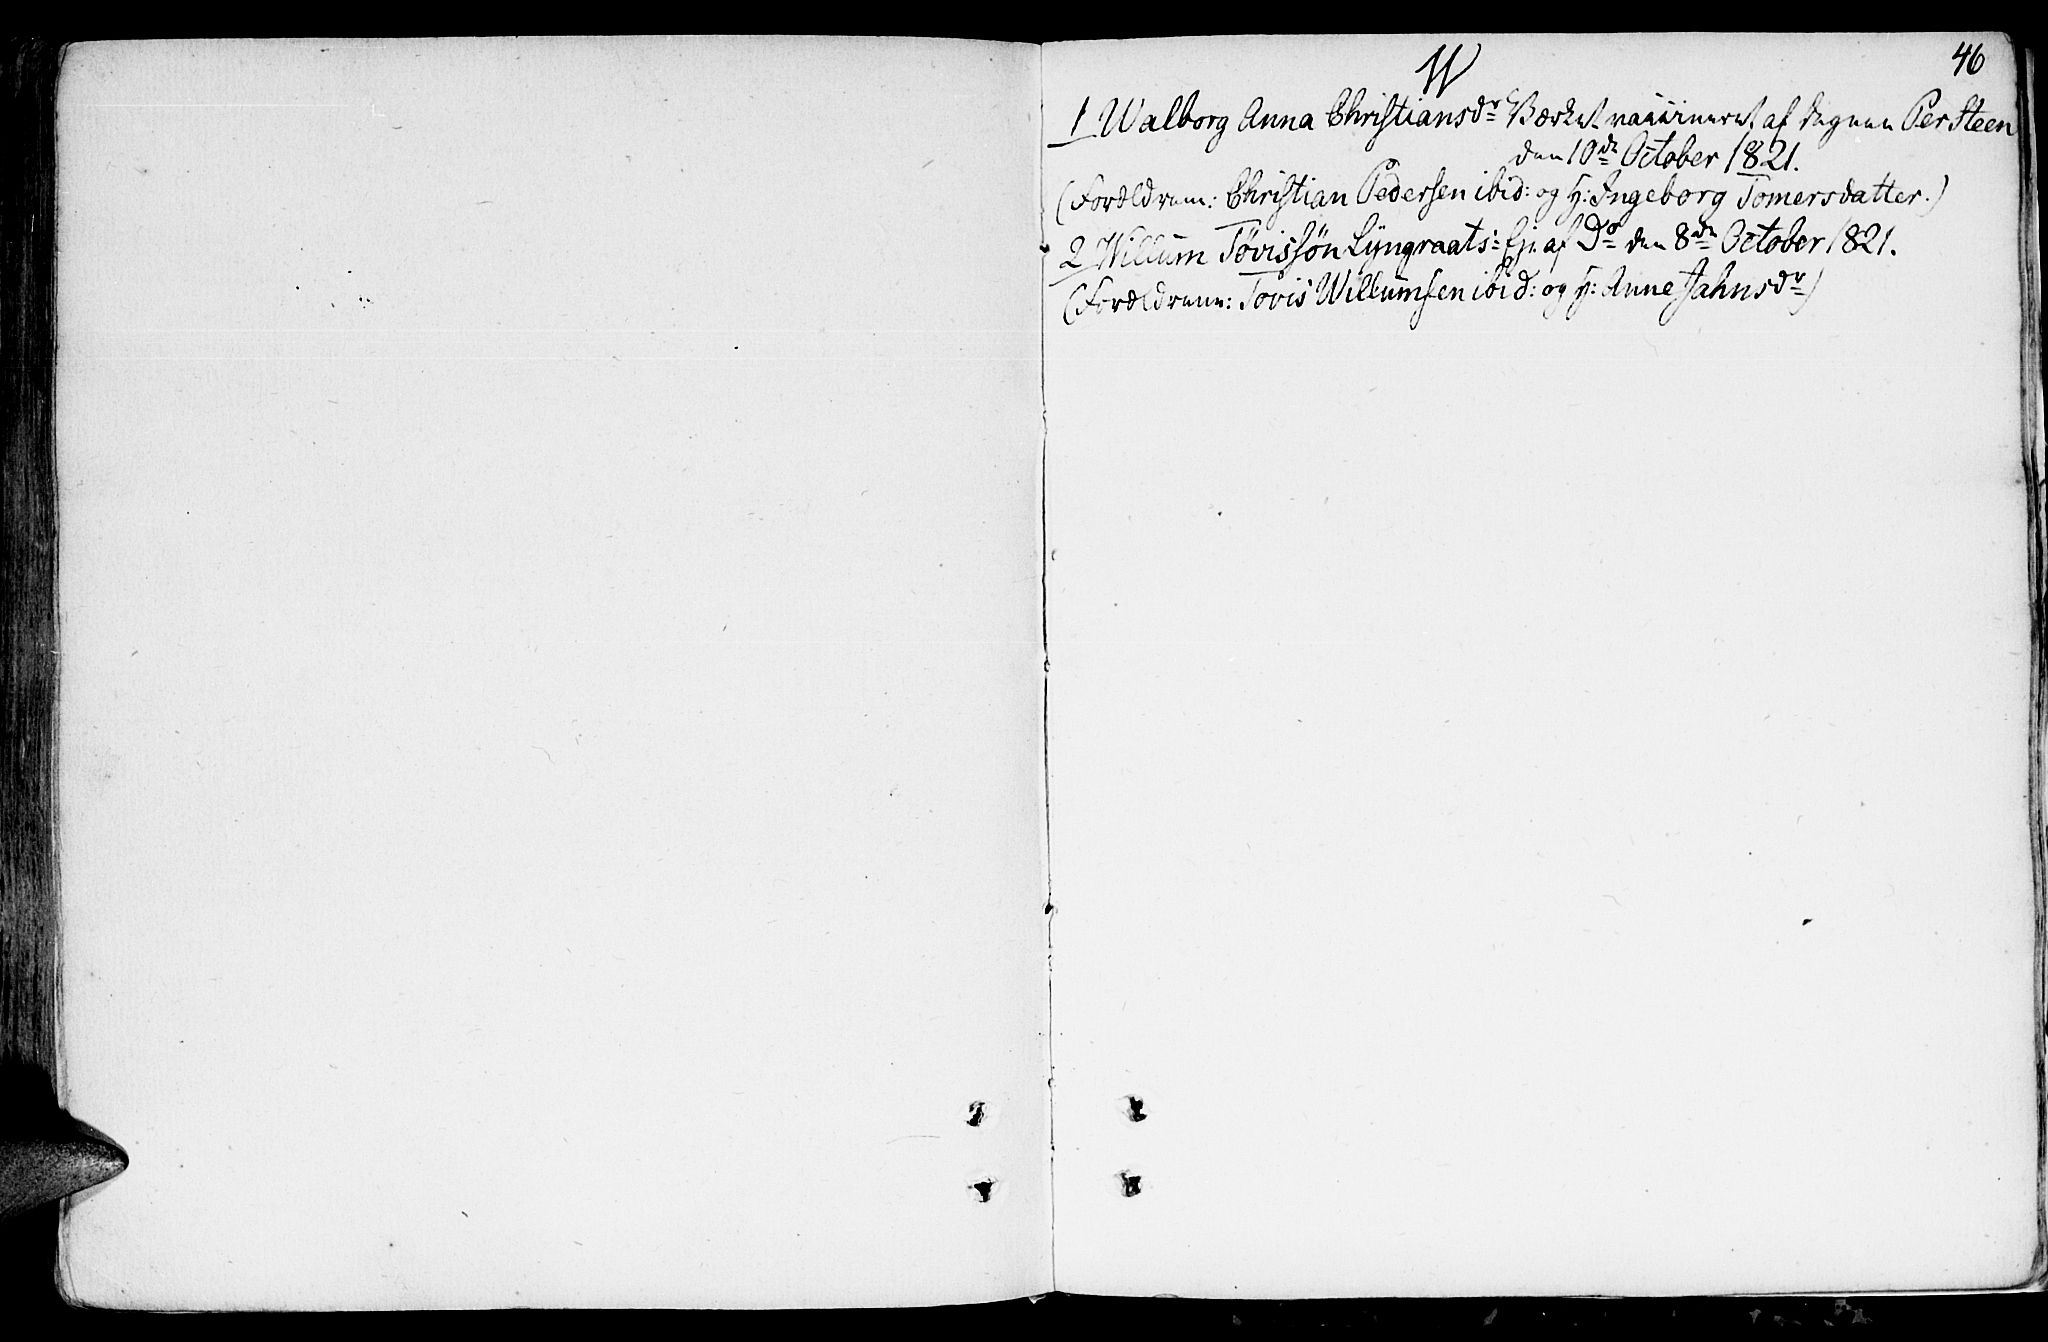 46
W
1 Walborg Anna Christiansdr Værket vaccineret af degnen Per Steen
den 10de October 1821.
(Forældrene: Christian Pedersen ibid: og H: Ingeborg Tomersdatter.)
2 Willum Tövissön Lÿngraats: Ej: af Do den 8de October 1821.
(Forældrene: Tovis Willumsen ibid: og H: Anne Jahnsdr)